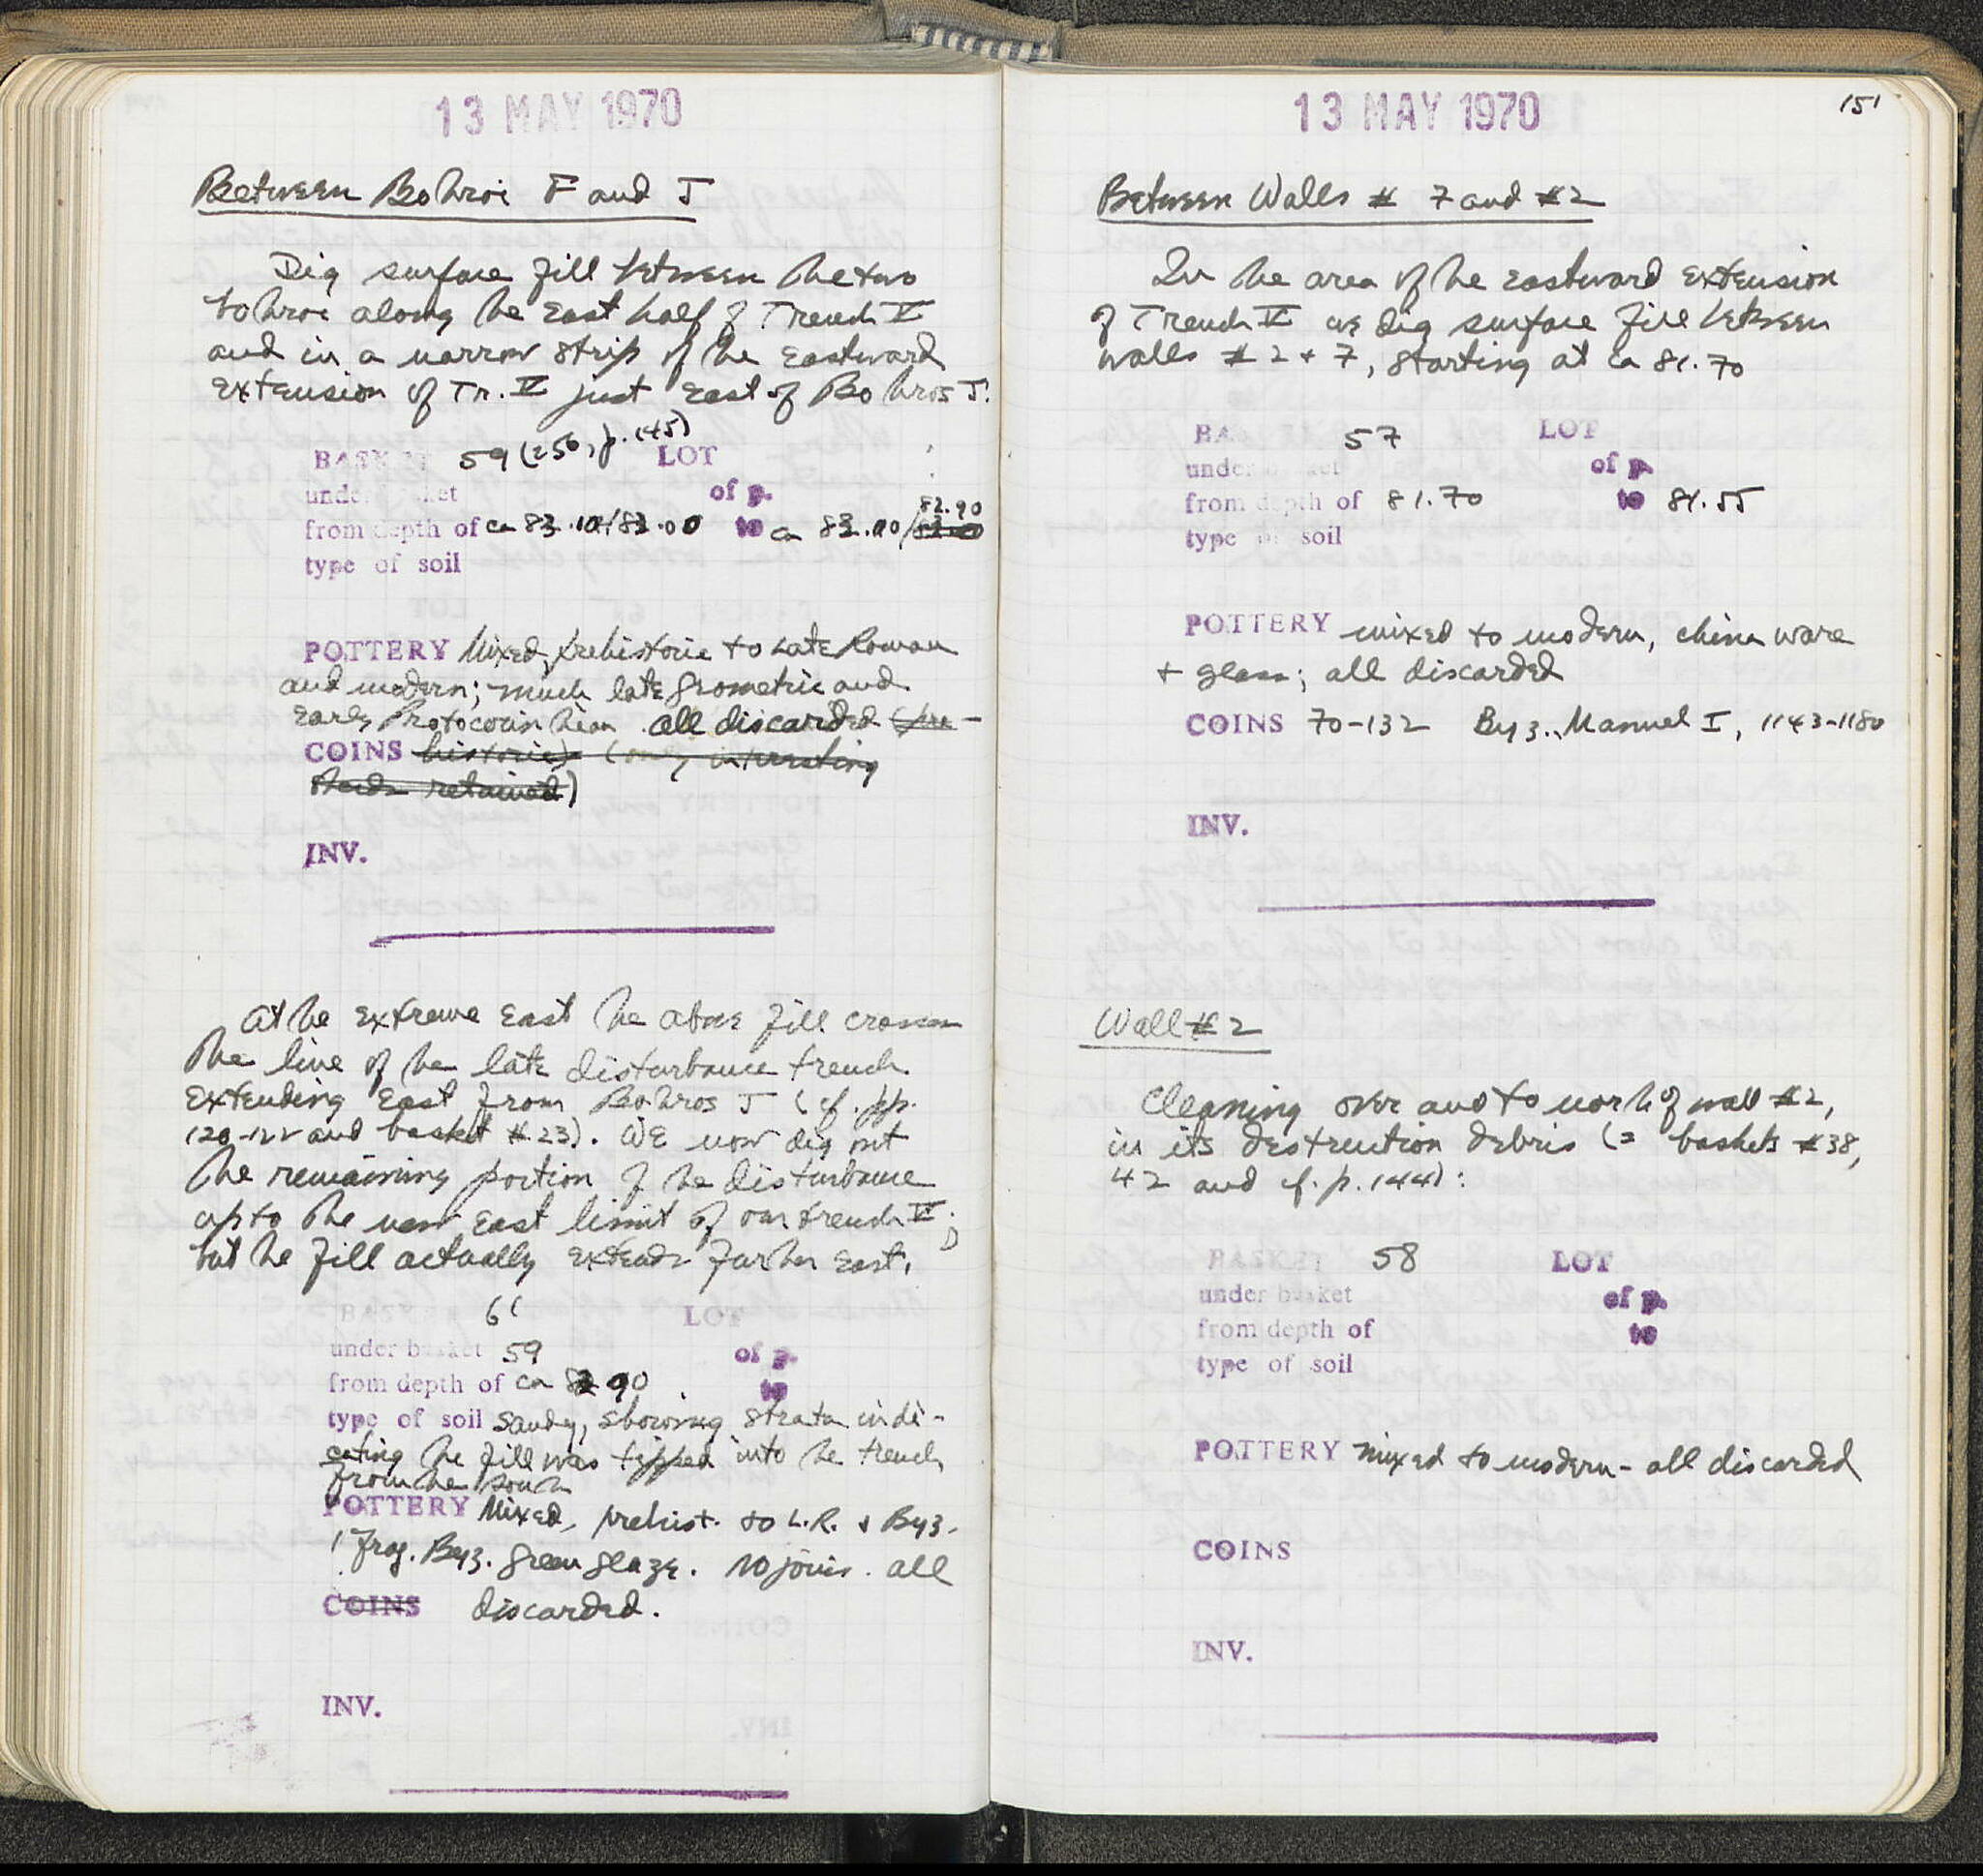 13 MAY 1970
Between Bothroi F and J
Dig surface fill between the two
bothroi along the East half of Trench V
and in a narrow strip of the Eastward
extension of Tr. V just East of Bothros J.
BASKET 59 (=56, p. 145) LOT
under basket of p.
from depth of ca 83.10/83.00 to ca 83.00/82.90
type of soil
POTTERY Mixed, prehistoric to Late Roman
and modern; much late geometric and
Early Protocorinthian. all discarded (pre-
COINS historic) (only interesting
sherds retained)
INV.
At the extreme East the above fill crosses
the line of the late disturbance trench
extending East from Bothros J (cf. pp.
120-122 and basket #23). We now dig out
the remaining portion of the disturbance
up to the new East limit of our trench V;
but the fill actually extends further East.
BASKET 61 LOT
under basket 59 of p.
from depth of ca 82.90 to
type of soil sandy, showing strata indi-
cating the fill was tipped into the trench
from the south
POTTERY Mixed, prehist. to L.R. & Byz.
1 frag. Byz. green glaze. No joins. all
COINS discarded.
INV.
13 MAY 1970
151
Between Walls # 7 and #2
In the area of the eastward extension
of Trench V we dig surface fill between
walls #2 + 7, starting at ca 81.70
BASKET 57 LOT
under basket of p.
from depth of 81.70 to 81.55
type of soil
POTTERY mixed to modern, china ware
+ glass; all discarded
COINS 70-132 Byz., Manuel I, 1143-1180
INV.
Wall #2
Cleaning over and to north of wall #2,
in its destruction debris (= baskets #38,
42 and cf. p. 144):
BASKET 58 LOT
under basket of p.
from depth of to
type of soil
POTTERY mixed to modern - all discarded
COINS
INV.